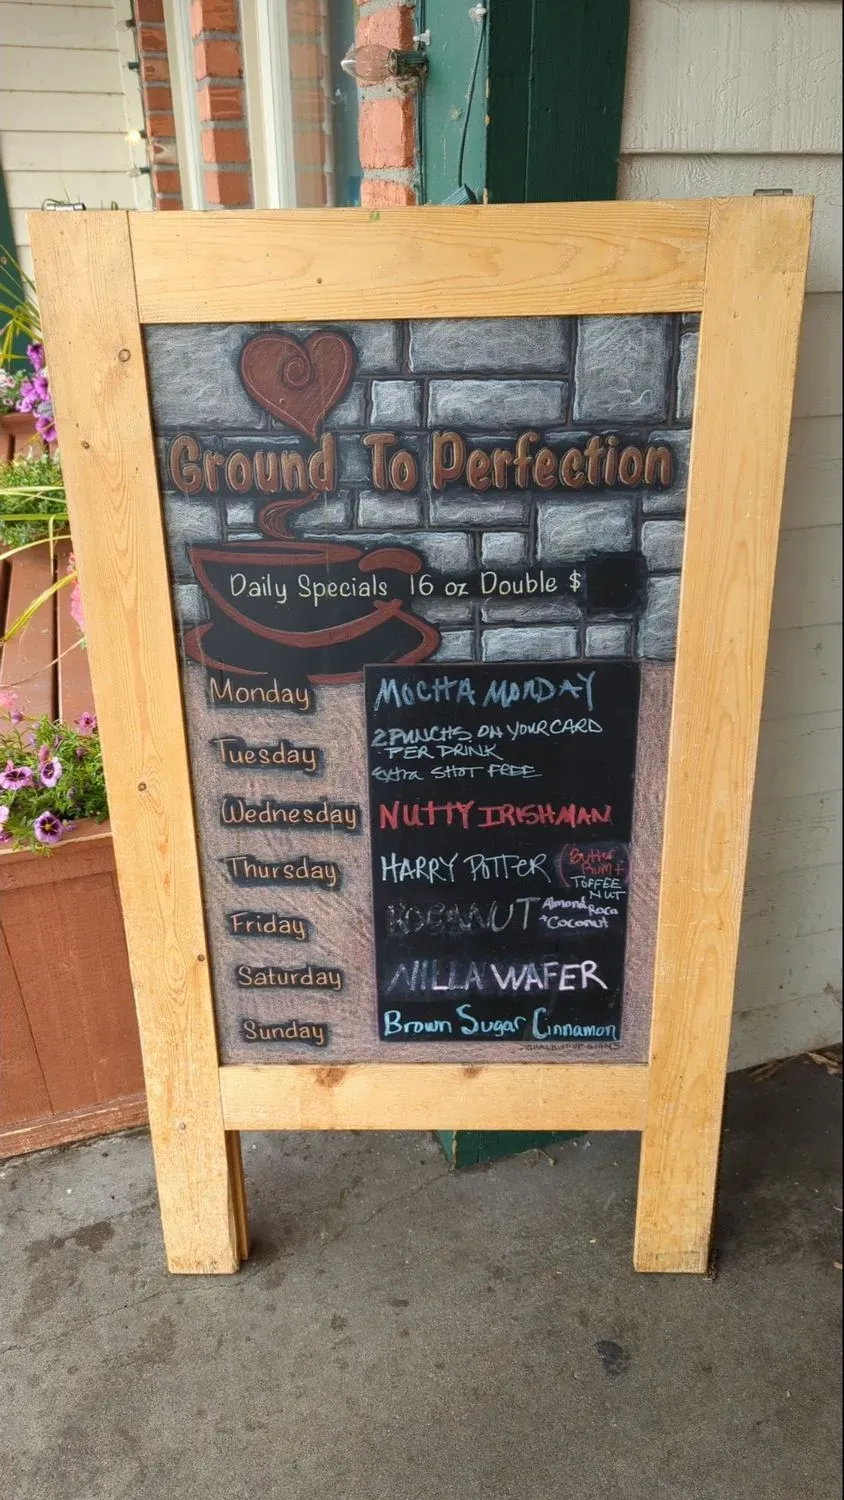 Ground To Perfection
Daily Specials 16 oz Double $
Monday MOCHA MONDAY
Tuesday 2 PUNCHS ON YOUR CARD
PER DRINK
Extra SHOT FREE
Wednesday NUTTY IRISHMAN
Thursday HARRY POTTER (Butter
Rum +
TOFFEE
NUT
Friday Almond Roca
+ Coconut
Saturday NILLA WAFER
Sunday Brown Sugar Cinnamon
CHALK IT UP SIGNS